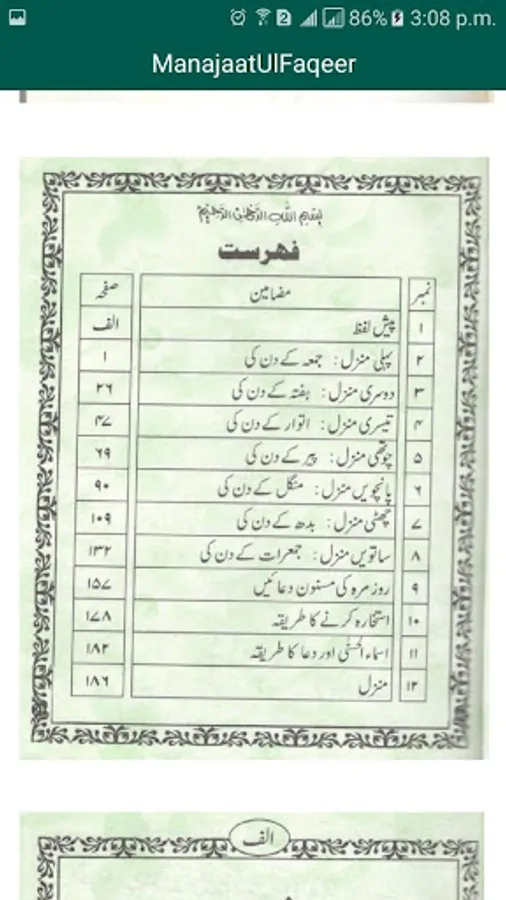 86% 3:08 p.m.
ManajaatUlFaqeer
بِسْمِ اللّٰهِ الرَّحْمٰنِ الرَّحِيْمِ
فہرست
نمبر مضامین صفحہ
۱ پیش لفظ الف
۲ پہلی منزل: جمعہ کے دن کی ۱
۳ دوسری منزل: ہفتہ کے دن کی ۲۶
۴ تیسری منزل: اتوار کے دن کی ۴۷
۵ چوتھی منزل: پیر کے دن کی ۶۹
۶ پانچویں منزل: منگل کے دن کی ۹۰
۷ چھٹی منزل: بدھ کے دن کی ۱۰۹
۸ ساتویں منزل: جمعرات کے دن کی ۱۳۲
۹ روزمرہ کی مسنون دعائیں ۱۵۷
۱۰ استخارہ کرنے کا طریقہ ۱۷۸
۱۱ اسماء الحسنٰی اور دعا کا طریقہ ۱۸۲
۱۲ منزل ۱۸۶
الف